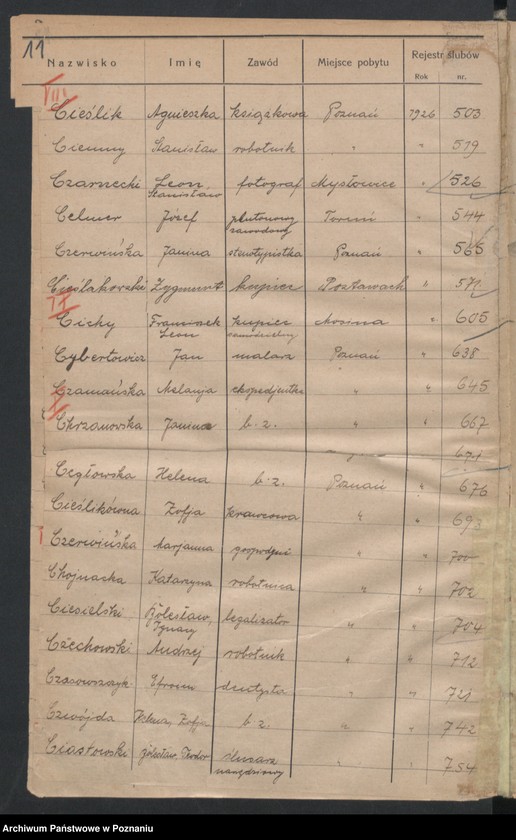 11
Nazwisko Imię Zawód Miejsce pobytu Rejestr ślubów
Rok nr.
VIII
Cieślik Agnieszka książkowa Poznań 1926 503
Ciemny Stanisław robotnik " " 519
Czarnecki Leon fotograf Mysłowice " 526
Stanisław
Celmer Józef plutonowy Toruń " 544
zawodowy
Czerwińska Janina stenotypistka Poznań " 565
Cieślakowski Zygmunt kupiec Postawach " 571
Cichy Franciszek kupiec Mosina " 605
Leon samodzielny
Cybertowicz Jan malarz Poznań " 638
Czamańska Melanja ekspedjentka " " 645
Chrzanowska Janina b. z. " " 667
671
Cegłowska Helena b. z. Poznań " 676
Cieślikówna Zofja krawcowa " " 693
Czerwińska Marjanna gospodyni " " 700
Chojnacka Katarzyna robotnica " " 702
Ciesielski Bolesław, legalizator " " 704
Ignacy
Czechowski Andrzej robotnik " " 712
Efroim dentysta " " 721
Czwójda Helena, Zofja b. z. " " 742
Ciastowski Bolesław, Teodor ślusarz " " 754
narzędziowy
Archiwum Państwowe w Poznaniu